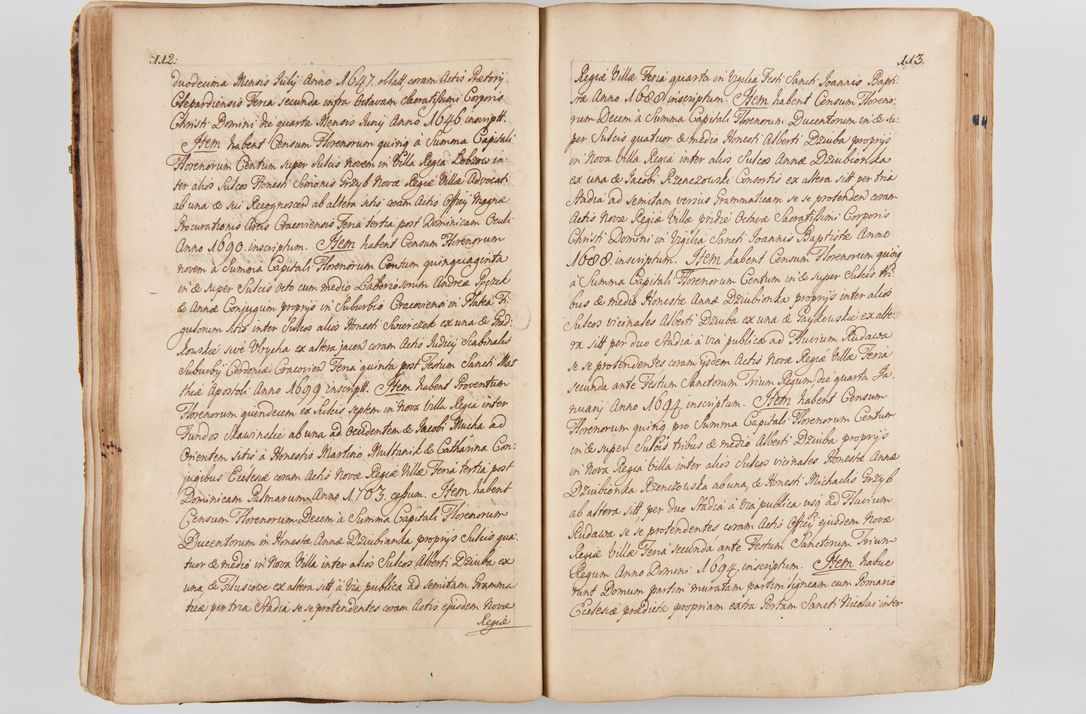 112.
duodecima Mensis Julij Anno 1647. oblatt coram Actis Prætorij
Clepardiensis Feria secunda infra Octavam Sacratissimi Corporis
Christi Domini die quarta Mensis Junij Anno 1646 inscriptt.
Item habent Censum Florenorum quinq a Summa Capitali
Florenorum Centum super Sulcis novem in Villa Regia Lobzow in:
ter alios Sulcos Honesti Simonis Grzyb Novæ Regiæ Villæ Advocati
ab una & sui Recognoscen ab altera sitis coram Actis Officij Magnæ
Procurationis Arcis Cracoviensis Feria tertia post Dominicam Oculi
Anno 1690. inscriptum. Item habent Censum Florenorum
novem à Summa Capitali Florenorum Centum quinquaginta
in & super Sulcis octo cum medio Laboriosorum Andreæ
& Annæ Conjugum proprijs in Suburbio Cracoviensi in Platea Fi:
gulorum sitis inter Sulcos alios Honesti Swierczek ex una & Grad
kowskie sivè Wtycha ex altera jacen coram Actis Judicij Scabinalis
Suburbij Cerdoniæ Cracovien Feria quinta post Festum Sancti Mat
thiæ Apostoli Anno 1699 inscriptt. Item habent Proventum
Florenorum quindecem ex Sulcis septem in Nova Villa Regia inter
Fundos Slawinskie ab una ad Occidentem & Jacobi Mucha ad
Orientem sitis à Honestis Martino Multanik & Catharina Con:
jugibus Ecclesiæ coram Actis Novæ Regiæ Villæ Feria tertia post
Dominicam Palmarum Anno 1703. cessum. Item habent
Censum Florenorum Decem à Summa Capitali Florenorum
Ducentorum in Honestæ Annæ Dziubianka proprijs Sulcis qua:
tuor & medio in Nova Villa inter alios Sulcos Alberti Dziuba ex
una, & Filusowe ex altera sitt à Via publica ad semitam Gramma
tice per tria Stadia se se protendentes coram Actis ejusdem Novæ
Regiæ
113.
Regiæ Villæ Feria quarta in Vigilia Festi Sancti Joannis Bapti:
stæ Anno 1688 inscriptum. Item habent Censum Floreno:
rum Decem à Summa Capitali Florenorum Ducentorum in & su:
per Sulcis quatuor & medio Honesti Alberti Dziuba proprijs
in Nova Villa Regia inter alios Sulcos Annæ Dziubionska
ex una & Jacobi Rzenczowski Consortis ex altera sitt per tria
Stadia ad semitam versus Grammaticam se se protenden coram
Actis Novæ Regiæ Villæ pridie Octavæ Sacratissimi Corporis
Christi Domini in Vigilia Sancti Joannis Baptistæ Anno
1688. inscriptum. Item habent Censum Florenorum quinq
à Summa Capitali Florenorum Centum in & super Sulcis tri:
bus & medio Honestæ Annæ Dziubionka proprijs inter alios
Sulcos vicinales Alberti Dziuba ex una & Gaykowskie ex alte:
ra sitt per duo Stadia à via publica ad Fluvium Rudawa
se se protendentes coram ijsdem Actis Novæ Regiæ Villæ Feria
secunda ante Festum Sanctorum Trium Regum die quarta Ja:
nuarij Anno 1694. inscriptum. Item habent Censum
Florenorum quinq pro Summa Capitali Florenorum Centum
in & super Sulcis tribus & medio Alberti Dziuba proprijs
in Nova Regia Villa inter alios Sulcos vicinales Honestæ Annæ
Dziubionka Rzenczowska ab una, & Honesti Michaelis Grzyb
ab altera sitt per duo Stadia à Via publica usq ad Fluvium
Rudawa se se protendentes coram Actis Officij ejusdem Novæ
Regiæ Villæ Feria secunda ante Festum Sanctorum Trium
Regum Anno Domini 1694. inscriptum. Item habue
runt Domum partim muratam partim ligneam cum Pomario
Ecclesiæ prædictæ propriam extra Portam Sancti Nicolai inter